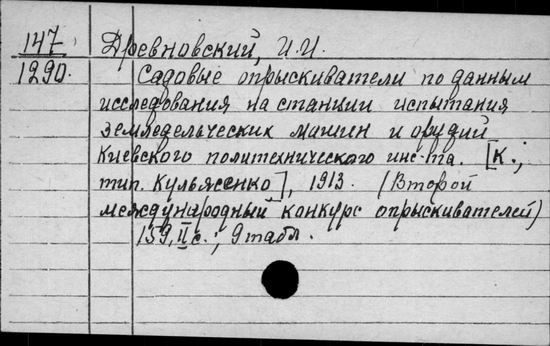 147 Древновский, И.И.
1290. Садовые опрыскиватели по данным
исследования на станции испытания
земледельческих машин и орудий
Киевского политехнического инс-та. [К.;
тип. Кульженко], 1913. (Второй
международный конкурс опрыскивателей)
159, II с.; 9 табл.